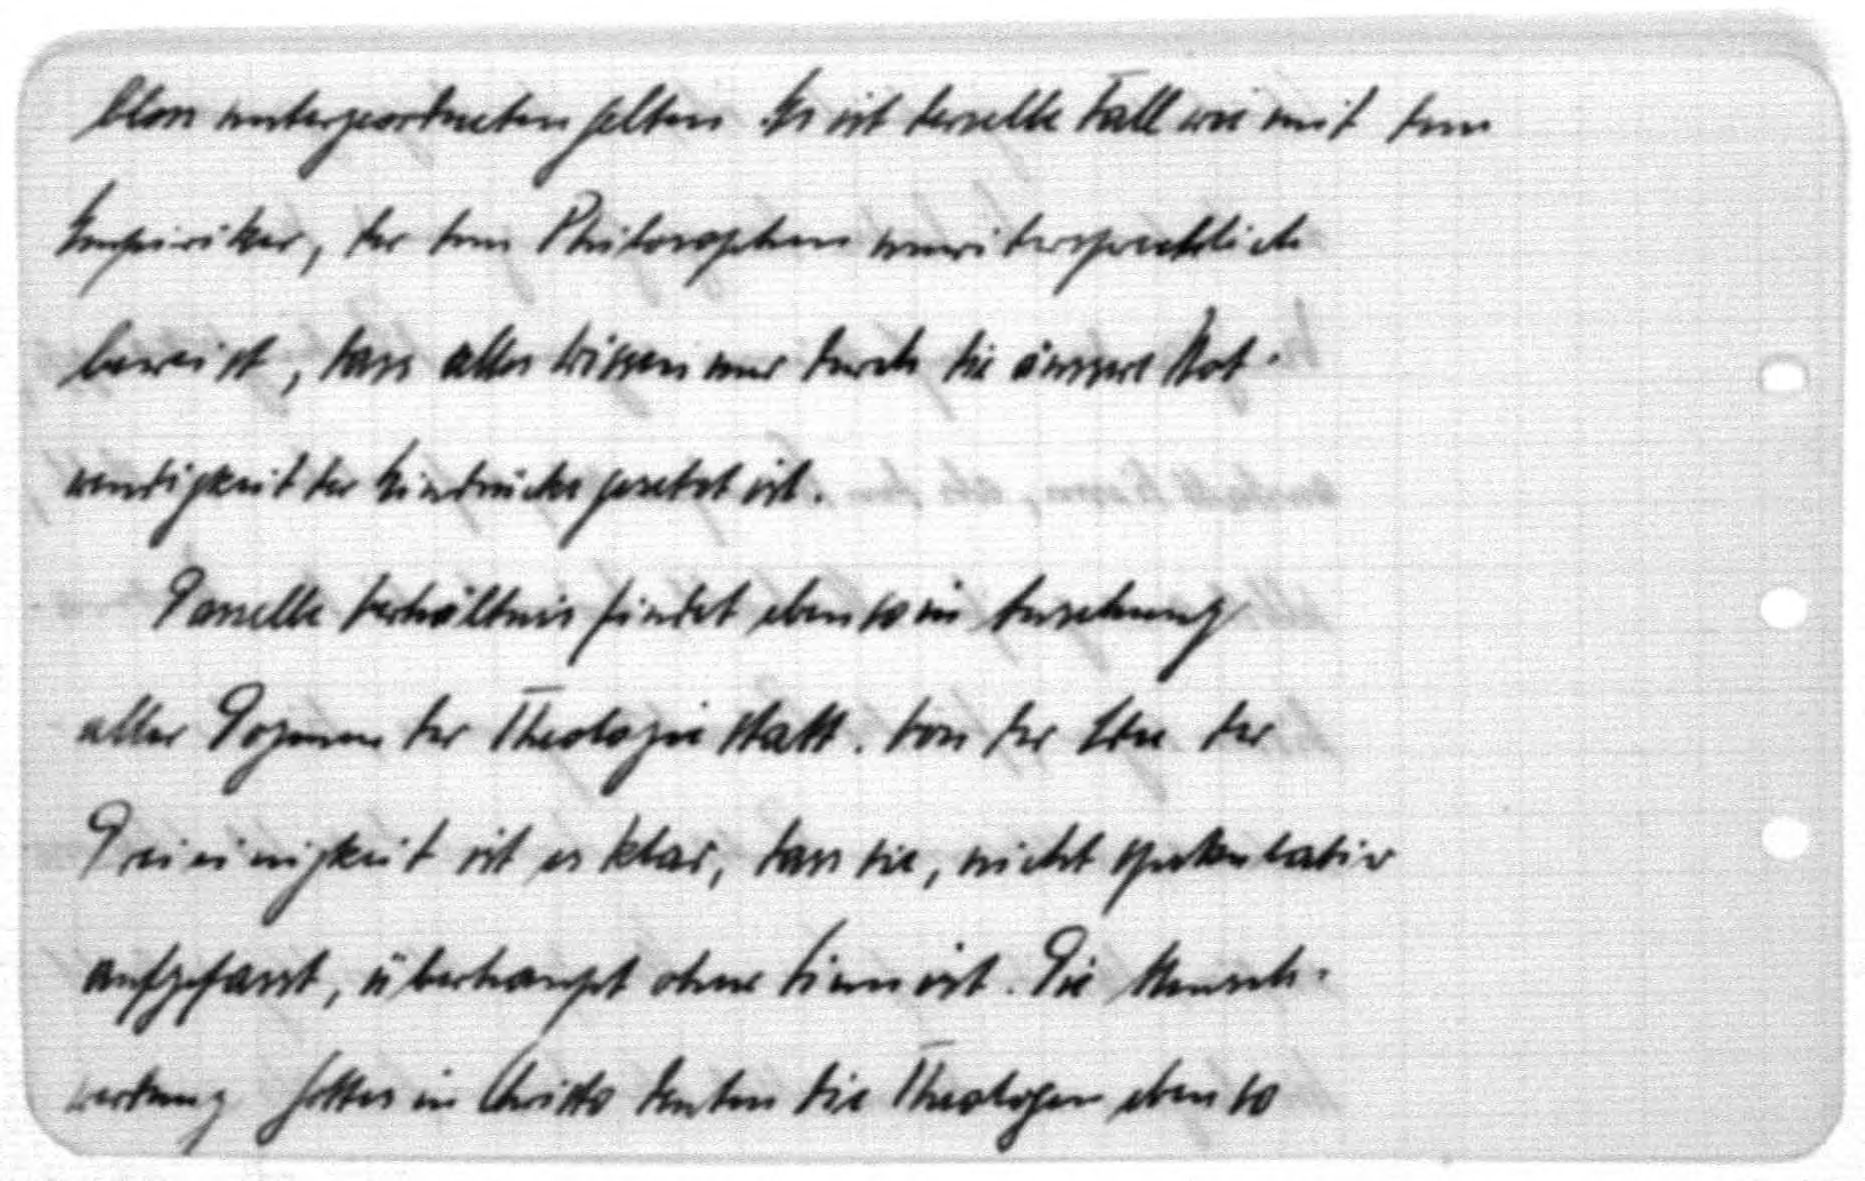 bloss untergeordneten gelten. Es ist derselbe Fall wie mit dem
Empiriker, der dem Philosophen unwidersprechlich
beweist, dass alles Wissen nur durch die äussere Not-
wendigkeit der Eindrücke gesetzt ist.
Dasselbe Verhältnis findet ebenso in Ansehung
aller Dogmen der Theologie statt. Von der Idee der
Dreieinigkeit ist es klar, dass sie, nicht spekulativ
aufgefasst, überhaupt ohne Sinn ist. Die Mensch-
werdung Gottes in Christo deuten die Theologen ebenso